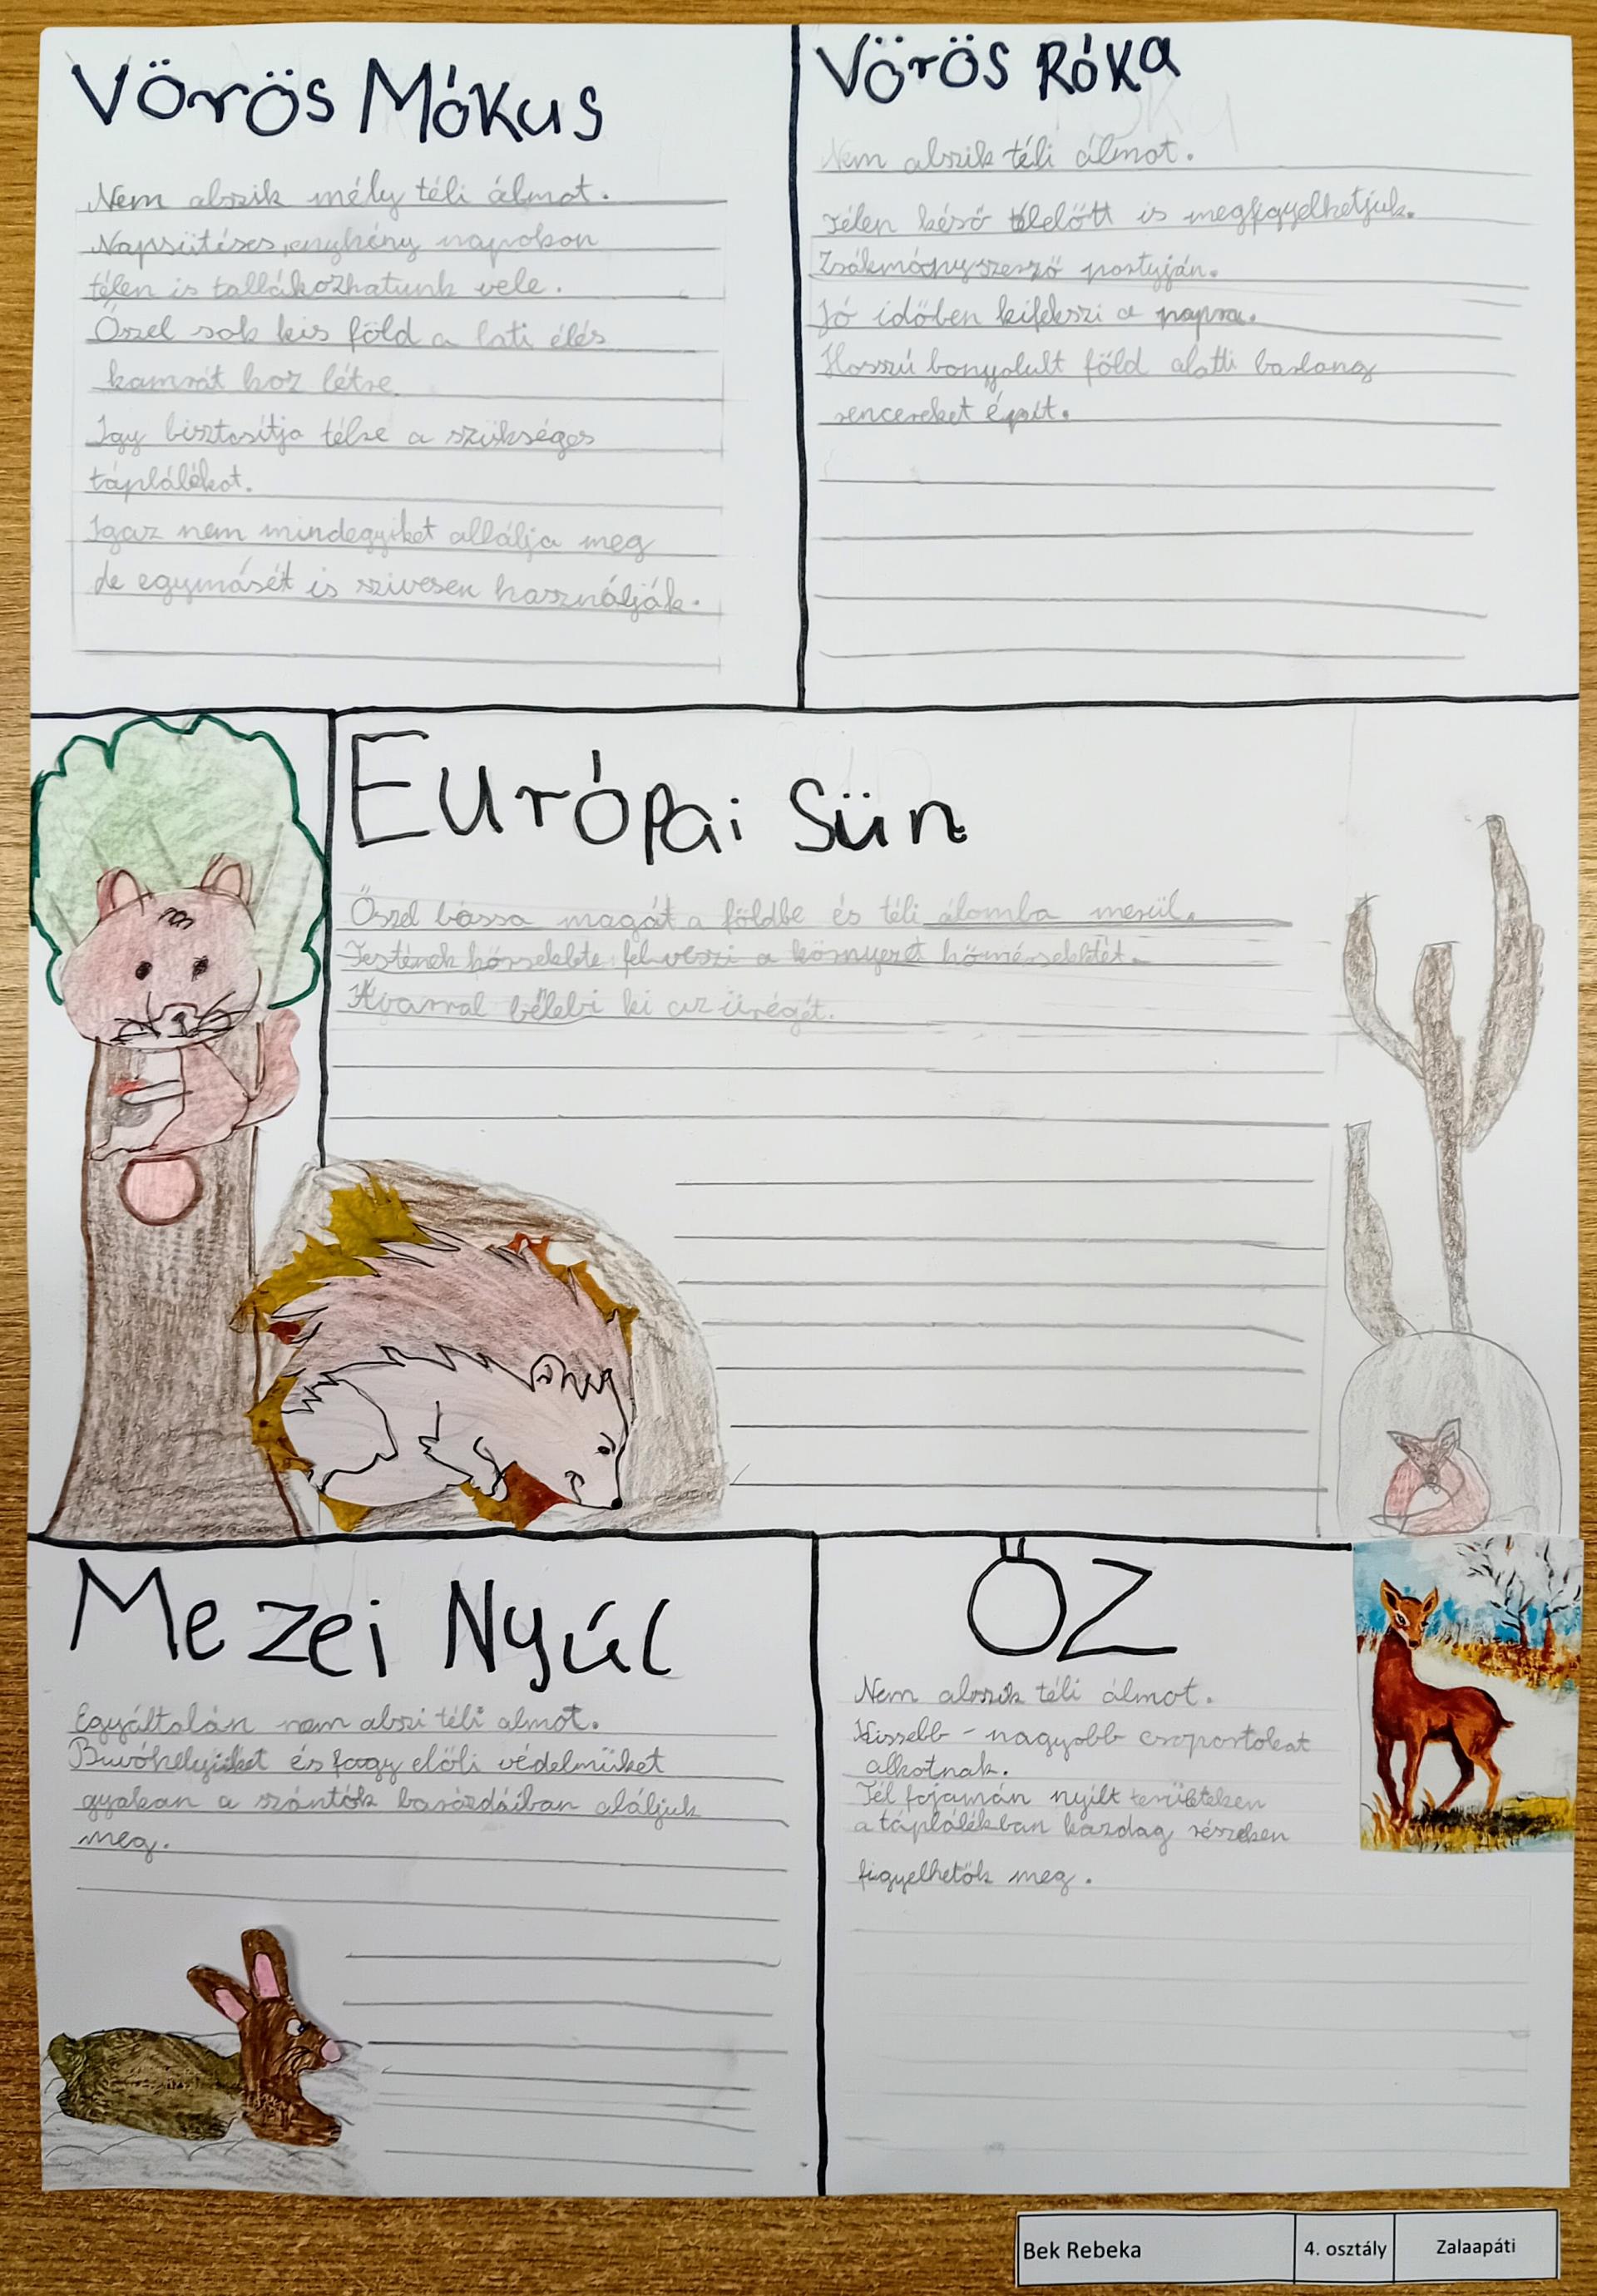 Vörös Mókus
Nem alszik mély téli álmot.
Napsütéses, enyhény napokon
télen is tallákozhatunk vele.
Ősszel sok kis föld a lati élés
kamrát hoz létre
Igy bisztosítja télre a szükséges
táplálékot.
Igaz nem mindegyiket allálja meg
de egymásét is szivesen használják.
Vörös Róka
Nem alszik téli álmot.
Télen késő délelőtt is megfigyelhetjük.
Zsákmányszerző portyján.
Jó időben kifekszi a napra.
Hosszú bonyolult föld alatti barlang
rencereket épít.
Európai Sün
Őszel bássa magát a földbe és téli álomba merül.
Testének hőrseklete felveszi a környezet hőmérsekletét.
Avarral béleli ki az üregét.
Mezei Nyúl
Egyáltalán nem alszi téli almot.
Buvóhelyüket és fagy elöli védelmüket
gyakan a szántók barázdáiban aláljuk
meg.
Őz
Nem alszik téli álmot.
Kissebb - nagyobb csoportokat
alkotnak.
Tél fojamán nyílt területeken
a táplálékban gazdag részeken
figyelhetők meg.
Bek Rebeka
4. osztály
Zalaapáti